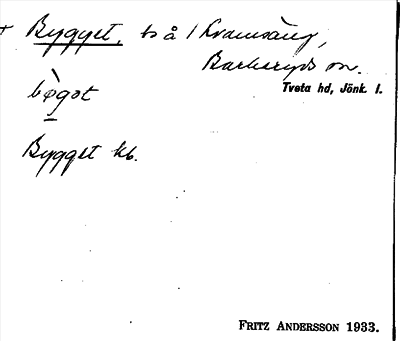 + Bygget, ts å 1 Kramsäng,
Barkeryds sn.
Tveta hd, Jönk. l.
bø̀got
Bygget kb.
FRITZ ANDERSSON 1933.